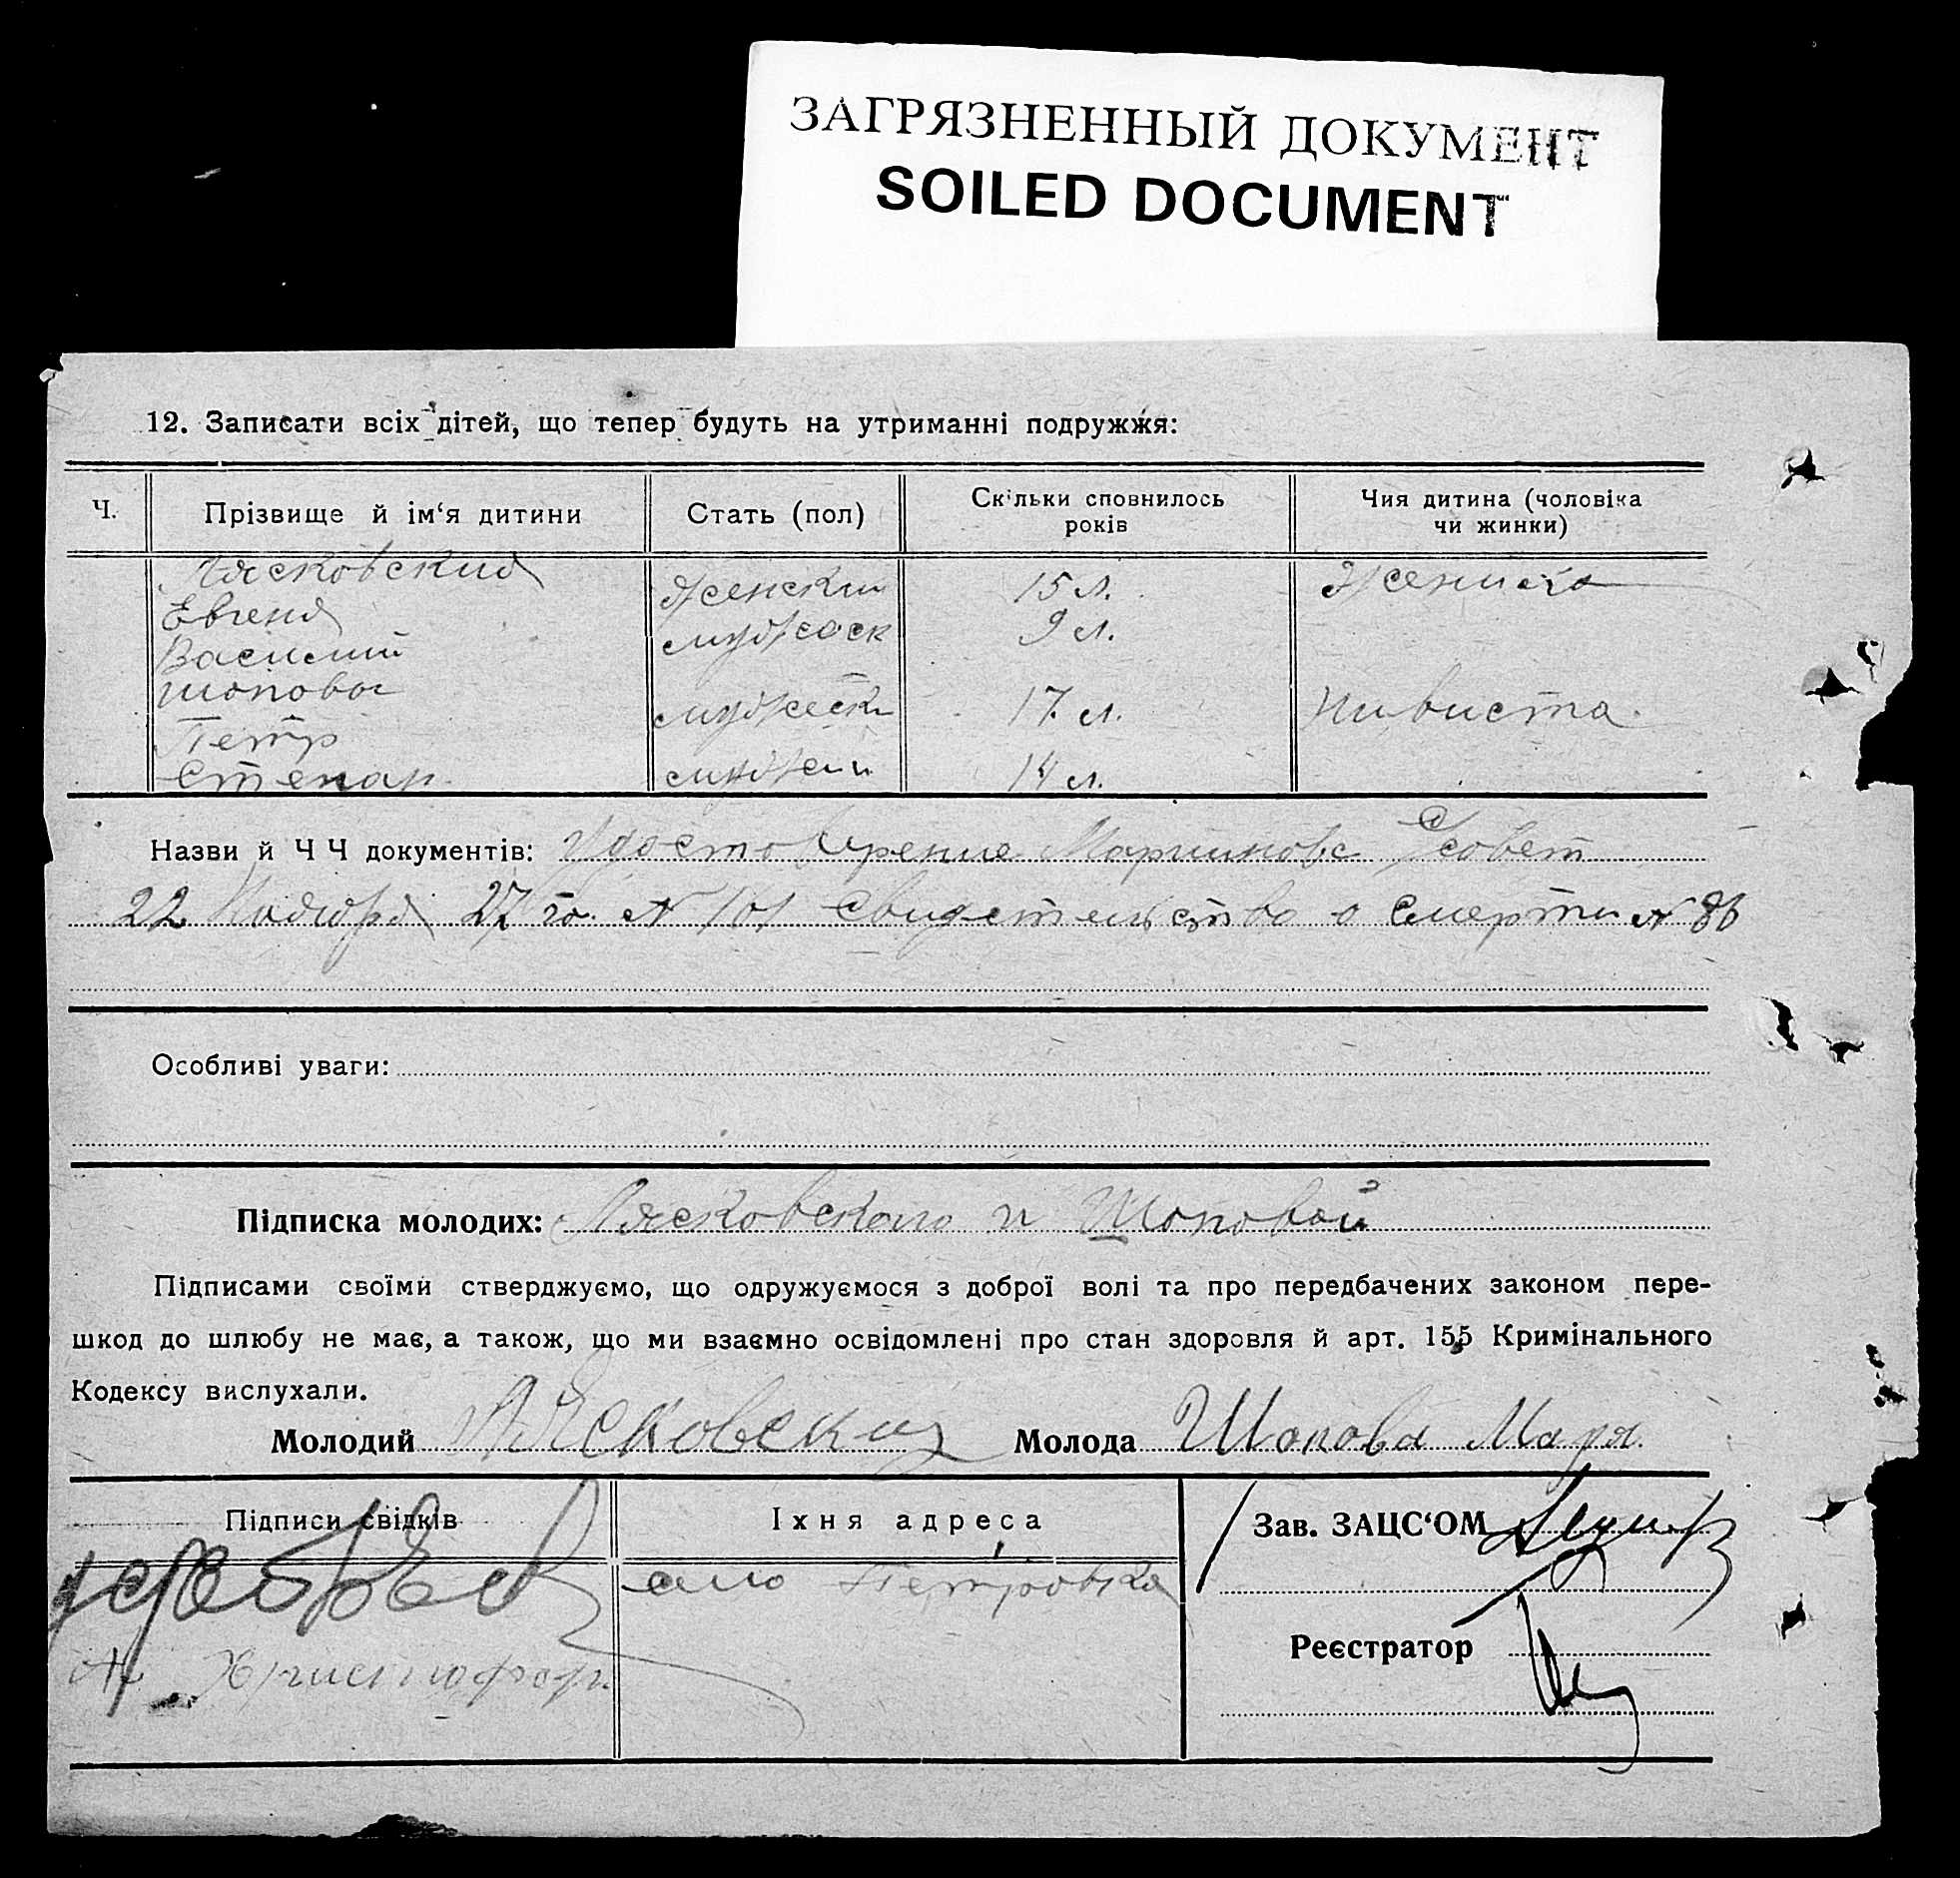 ЗАГРЯЗНЕННЫЙ ДОКУМЕНТ
SOILED DOCUMENT
12. Записати всіх дітей, що тепер будуть на утриманні подружжя:
Ч. Прізвище й ім‘я дитини Стать (пол) Скільки сповнилось років Чия дитина (чоловіка чи жинки)
Лясковский
Евгения женский 15 л. Жениха
Василий мужеск 9 л.
Шопова
Петр мужески 17 л. Нивиста
Степан 14 л.
Назви й Ч Ч документів: Удостоверение Совет
22 Ноября 27 го. № 101 Свидетельство о смерти № 86
Особливі уваги:
Підписка молодих: Лясковского и Шоповой
Підписами своїми стверджуємо, що одружуємося з доброї волі та про передбачених законом пере-
шкод до шлюбу не має, а також, що ми взаємно освідомлені про стан здоровля й арт. 155 Кримінального
Кодексу вислухали.
Молодий Лясковский Молода Шопова Маря
Підписи свідків Їхня адреса Зав. ЗАЦС‘ОМ
Петровка
Реєстратор
Христофор